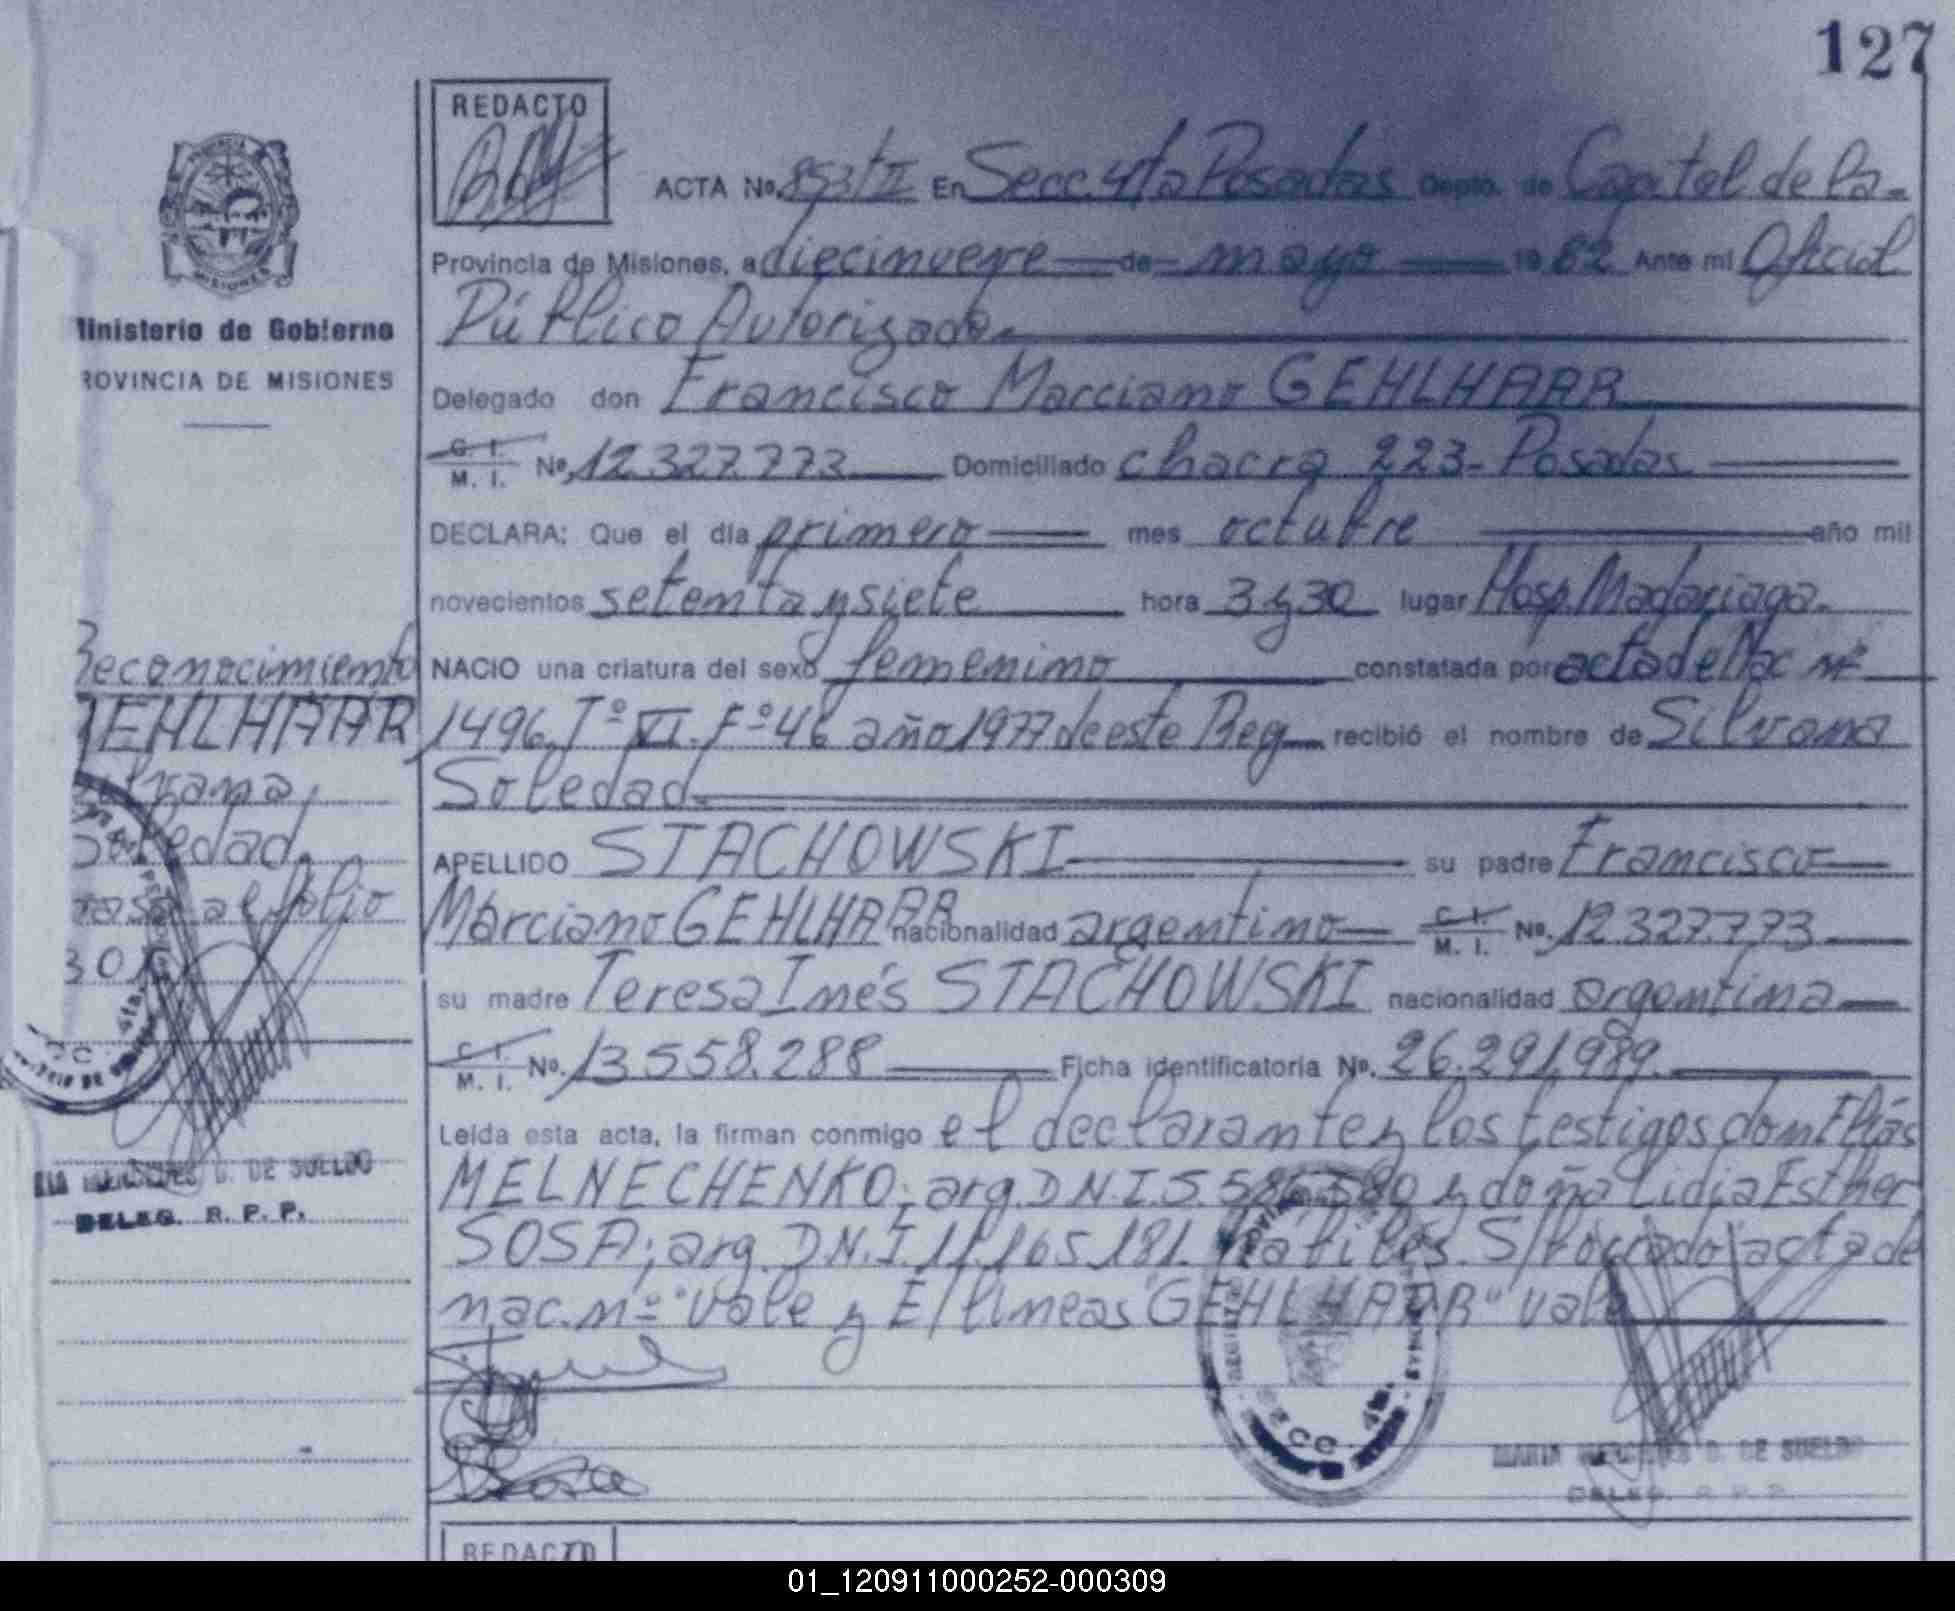 127
REDACTO
ACTA No. 853/II En Secc. 4ta Posadas Depto. de Capital de la-
Provincia de Misiones, a diecinueve de mayo 1982 Ante mi Oficial
Público Autorizado.
Ministerio de Gobierno
PROVINCIA DE MISIONES
Delegado don Francisco Marciano GEHLHAAR
C. I.
M. I. No. 12.327.773 Domiciliado chacra 223- Posadas
DECLARA: Que el día primero mes octubre año mil
novecientos setenta y siete hora 3 y 30 lugar Hosp. Madariaga.
NACIO una criatura del sexo femenino constatada por acta de Nac nº
1496, Tº VI. Fº 46 año 1977 de este Reg. recibió el nombre de Silvana
Soledad.
APELLIDO STACHOWSKI su padre Francisco
Marciano GEHLHAAR nacionalidad argentino C. I.
M. I. No. 12.327.773
su madre Teresa Inés STACHOWSKI nacionalidad argentina
C. I.
M. I. No. 13.558.288 Ficha identificatoria No. 26.291.989.
Leída esta acta, la firman conmigo el declarante y los testigos don Elías
MELNECHENKO; arg. D.N.I. y doña Lidia Esther
SOSA; arg. D.N.I. 11.165.181. hábiles. S/borrado "acta de
nac. nº" vale y E/lineas "GEHLHAAR" vale
Reconocimiento
GEHLHAAR
Silvana
Soledad.
pasa al folio
301
MARIA MERCEDES D. DE SUELDO
DELEG. R. P. P.
MARIA MERCEDES D. DE SUELDO
DELEG. R. P. P.
SECC. 4ta.
REDACTO
01_120911000252-000309